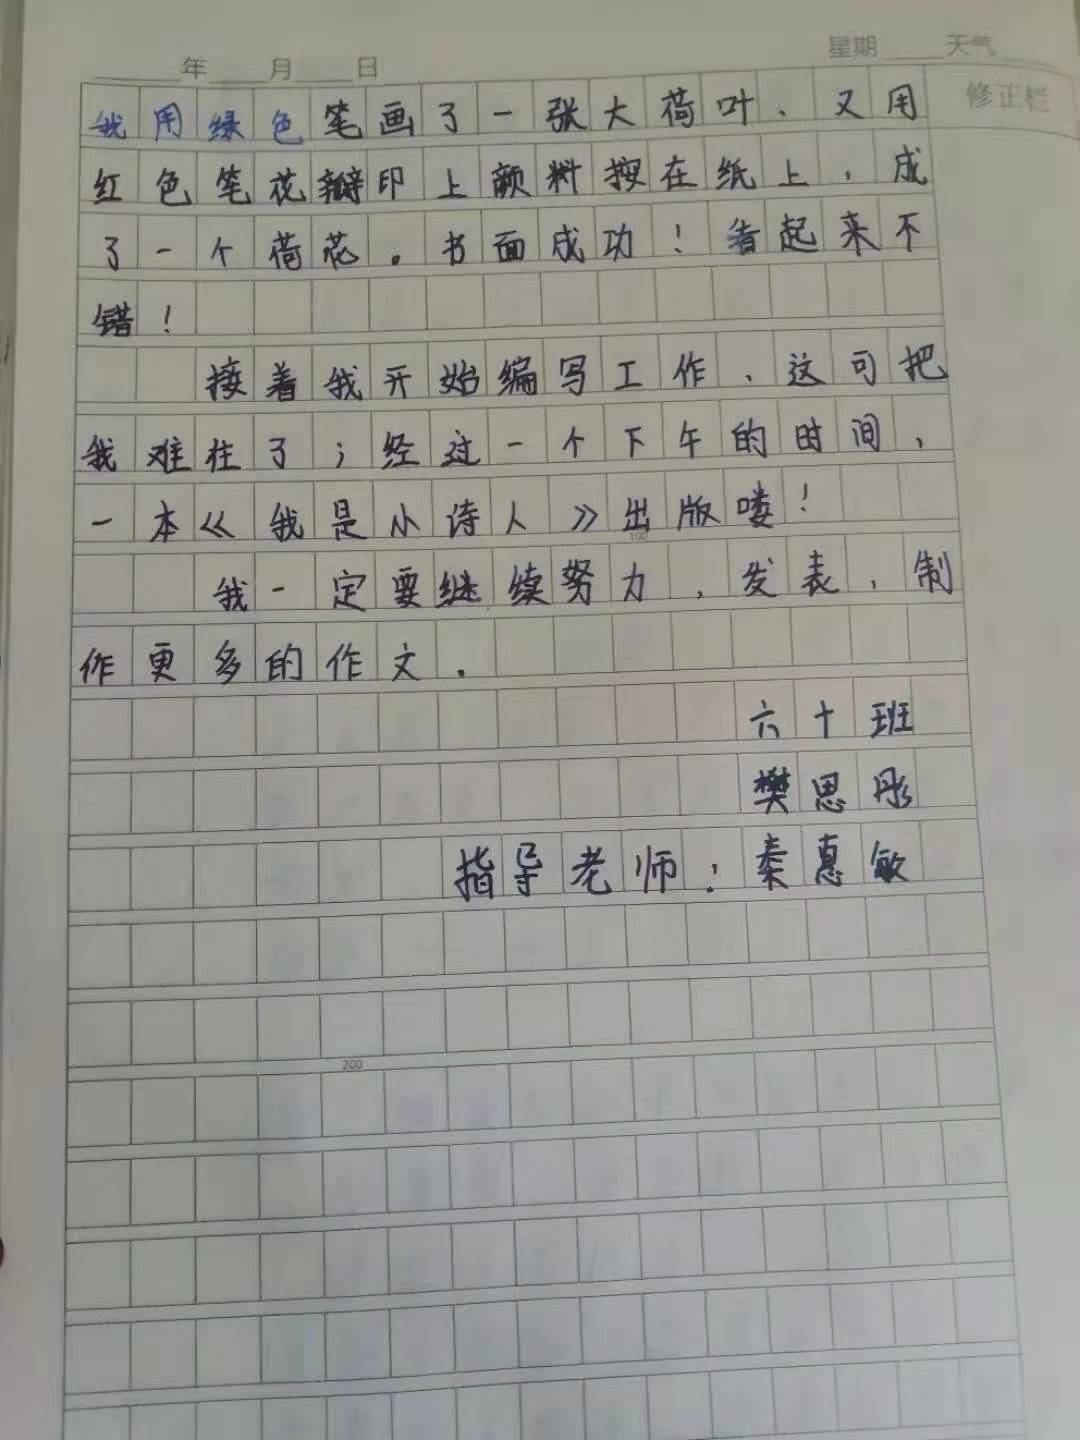 年 月 日 星期 天气
修正栏
我用绿色笔画了一张大荷叶、又用
红色笔花瓣印上颜料按在纸上，成
了一个荷花。书面成功！看起来不
错！
接着我开始编写工作、这可把
我难住了；经过一个下午的时间，
一本《我是小诗人》出版喽！
100
我一定要继续努力，发表，制
作更多的作文.
六十班
樊思彤
指导老师：秦惠敏
200